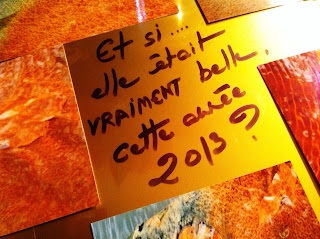 Et si....
elle était
VRAIMENT belle,
cette année
2013?